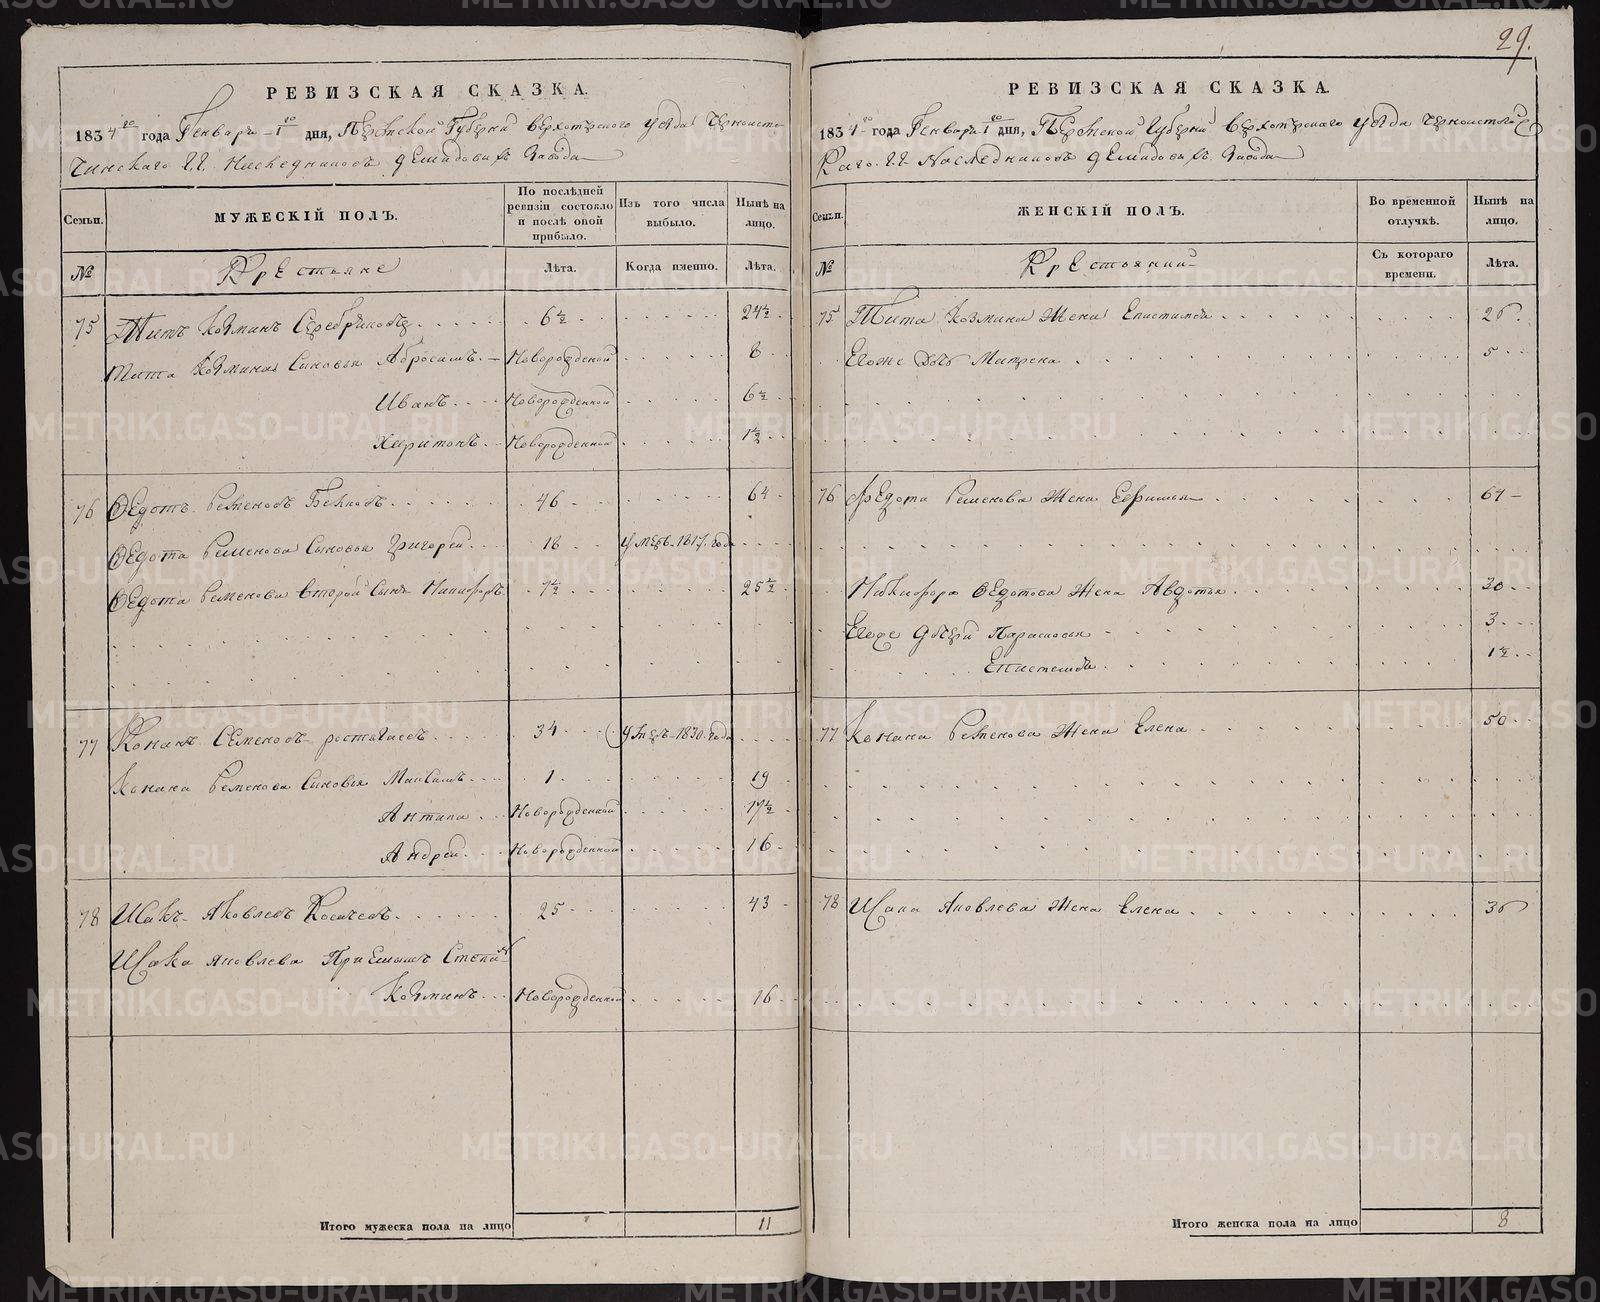 29.
РЕВИЗСКАЯ СКАЗКА.
1834 года Генваря 1 дня, Пермской Губернии Верхотурского уезда Черноисто
чинскаго Г.Г. Наследниковъ Демидовыхъ Завода
Семьи.
МУЖЕСКІЙ ПОЛЪ.
По послѣдней ревизіи состояло и послѣ оной прибыло.
Изъ того числа выбыло.
Нынѣ на лицо.
№
Крестьяне
Лѣта.
Когда именно.
Лѣта.
75 Титъ Козминъ Серебряковъ 6½ 24½
Тита Козмина Сыновья Абросимъ Новорожденной 8
Иванъ Новорожденной 6½
Харитонъ Новорожденной 1½
76 Федотъ Семеновъ 46 64
Федота Семенова Сыновья Григорей 18 умеръ 1817 года
Федота Семенова второй Сынъ Никифоръ 7½ 25½
77 Конанъ Семеновъ 34 умеръ 1830 года
Конана Семенова Сыновья Максимъ 1 19
Антипа Новорожденной 17½
Андрей Новорожденной 16
78 Исакъ Яковлевъ 25 43
Исака Яковлева Приемышъ Степанъ
Козминъ Новорожденной 16
Итого мужеска пола на лицо 11
РЕВИЗСКАЯ СКАЗКА.
1834 года Генваря 1 дня, Пермской Губернии Верхотурскаго уезда Черноисточин
скаго Г.Г. Наследниковъ Демидовыхъ Завода
Семьи.
ЖЕНСКІЙ ПОЛЪ.
Во временной отлучкѣ.
Нынѣ на лицо.
№
Крестьянки
Съ котораго времени.
Лѣта.
75 Тита Козмина Жена Епистимея 26
Ево же Дочь Матрена 5
76 Федота Семенова Жена 61
Никифора Федотова Жена Авдотья 30
Ево же Дочери Парасковья 3
Епистемея 1½
77 Конана Семенова Жена Елена 50
78 Исака Яковлева Жена Елена 36
Итого женска пола на лицо 8
METRIKI.GASO-URAL.RU